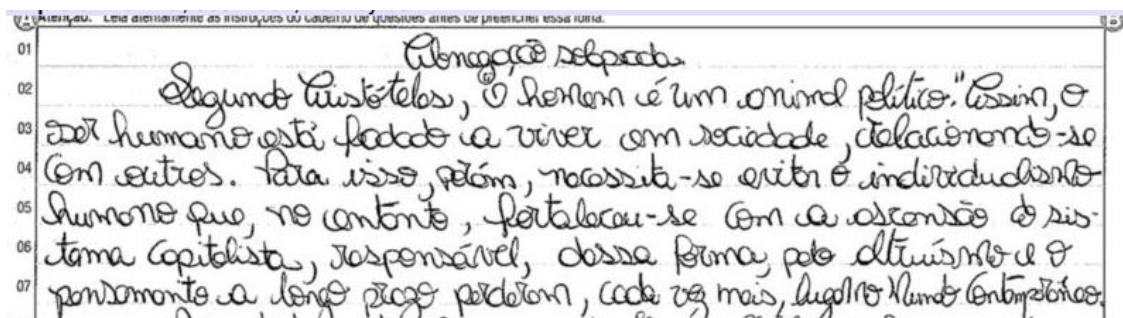 Atenção: Leia atentamente as instruções do caderno de questões antes de preencher essa folha.
01 Abnegação solapada
02 Segundo Aristóteles, "O homem é um animal político." Assim, o
03 ser humano está fadado a viver em sociedade, relacionando-se
04 com outros. Para isso, porém, necessita-se evitar o individualismo
05 humano que, no entanto, fortaleceu-se com a ascensão do sis-
06 tema capitalista, responsável, dessa forma, pelo altruísmo e o
07 pensamento a longo prazo perderem, cada vez mais, lugar no Mundo Contemporâneo.